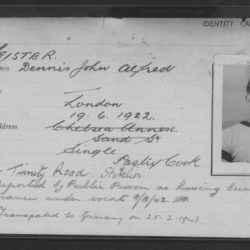 IDENTITY CA
EISTER.
Dennis John Alfred
London
19.6.1922.
dress
Chelsea Annex.
Sand St
Single
Pastry Cook
Trinity Road
eported by Public Prison as having been
under escort
Transported to Germany on 25.2.1943.